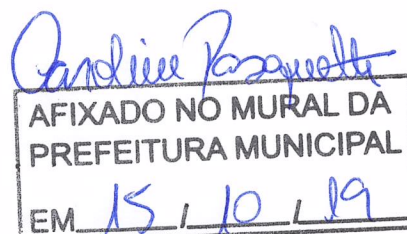 Caroline Pasqualotti
AFIXADO NO MURAL DA
PREFEITURA MUNICIPAL
EM 15 / 10 / 19